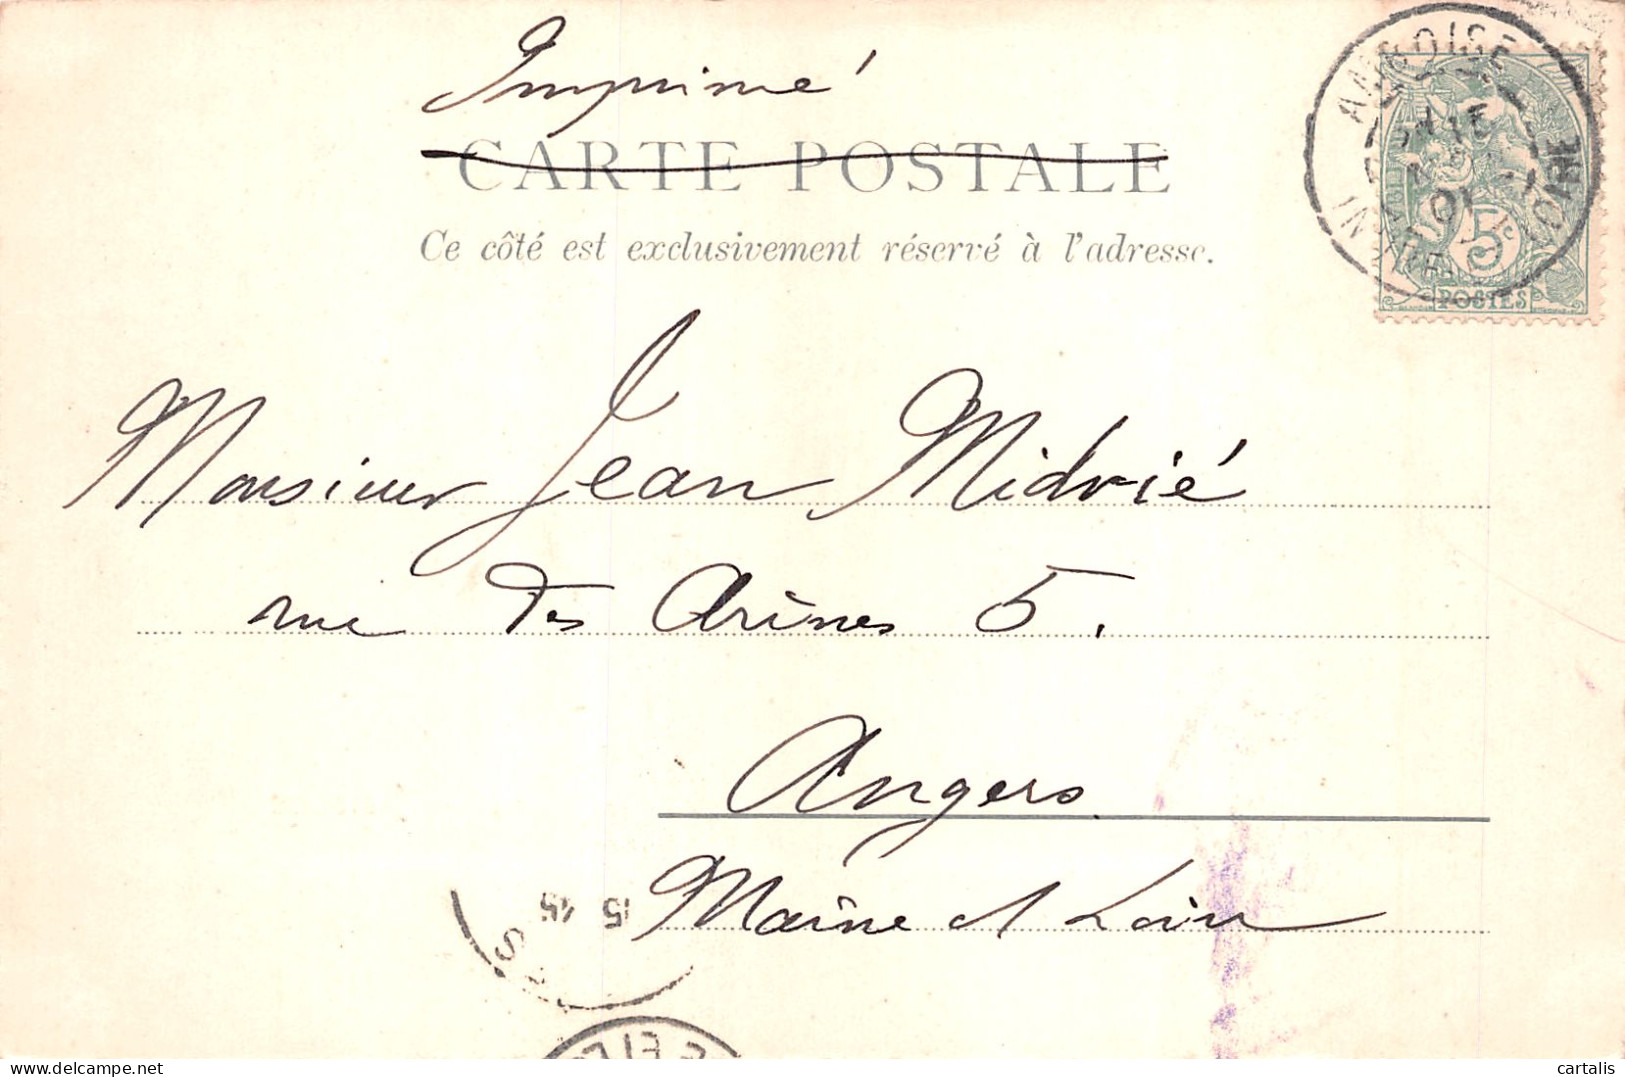 Imprimé
CARTE POSTALE
Ce côté est exclusivement réservé à l'adresse.
AMBOISE
01
INDRE ET LOIRE
5c
POSTES
Monsieur Jean Midrié
rue des Arènes 5.
Angers
Maine et Loire
15 45
delcampe.net
cartalis